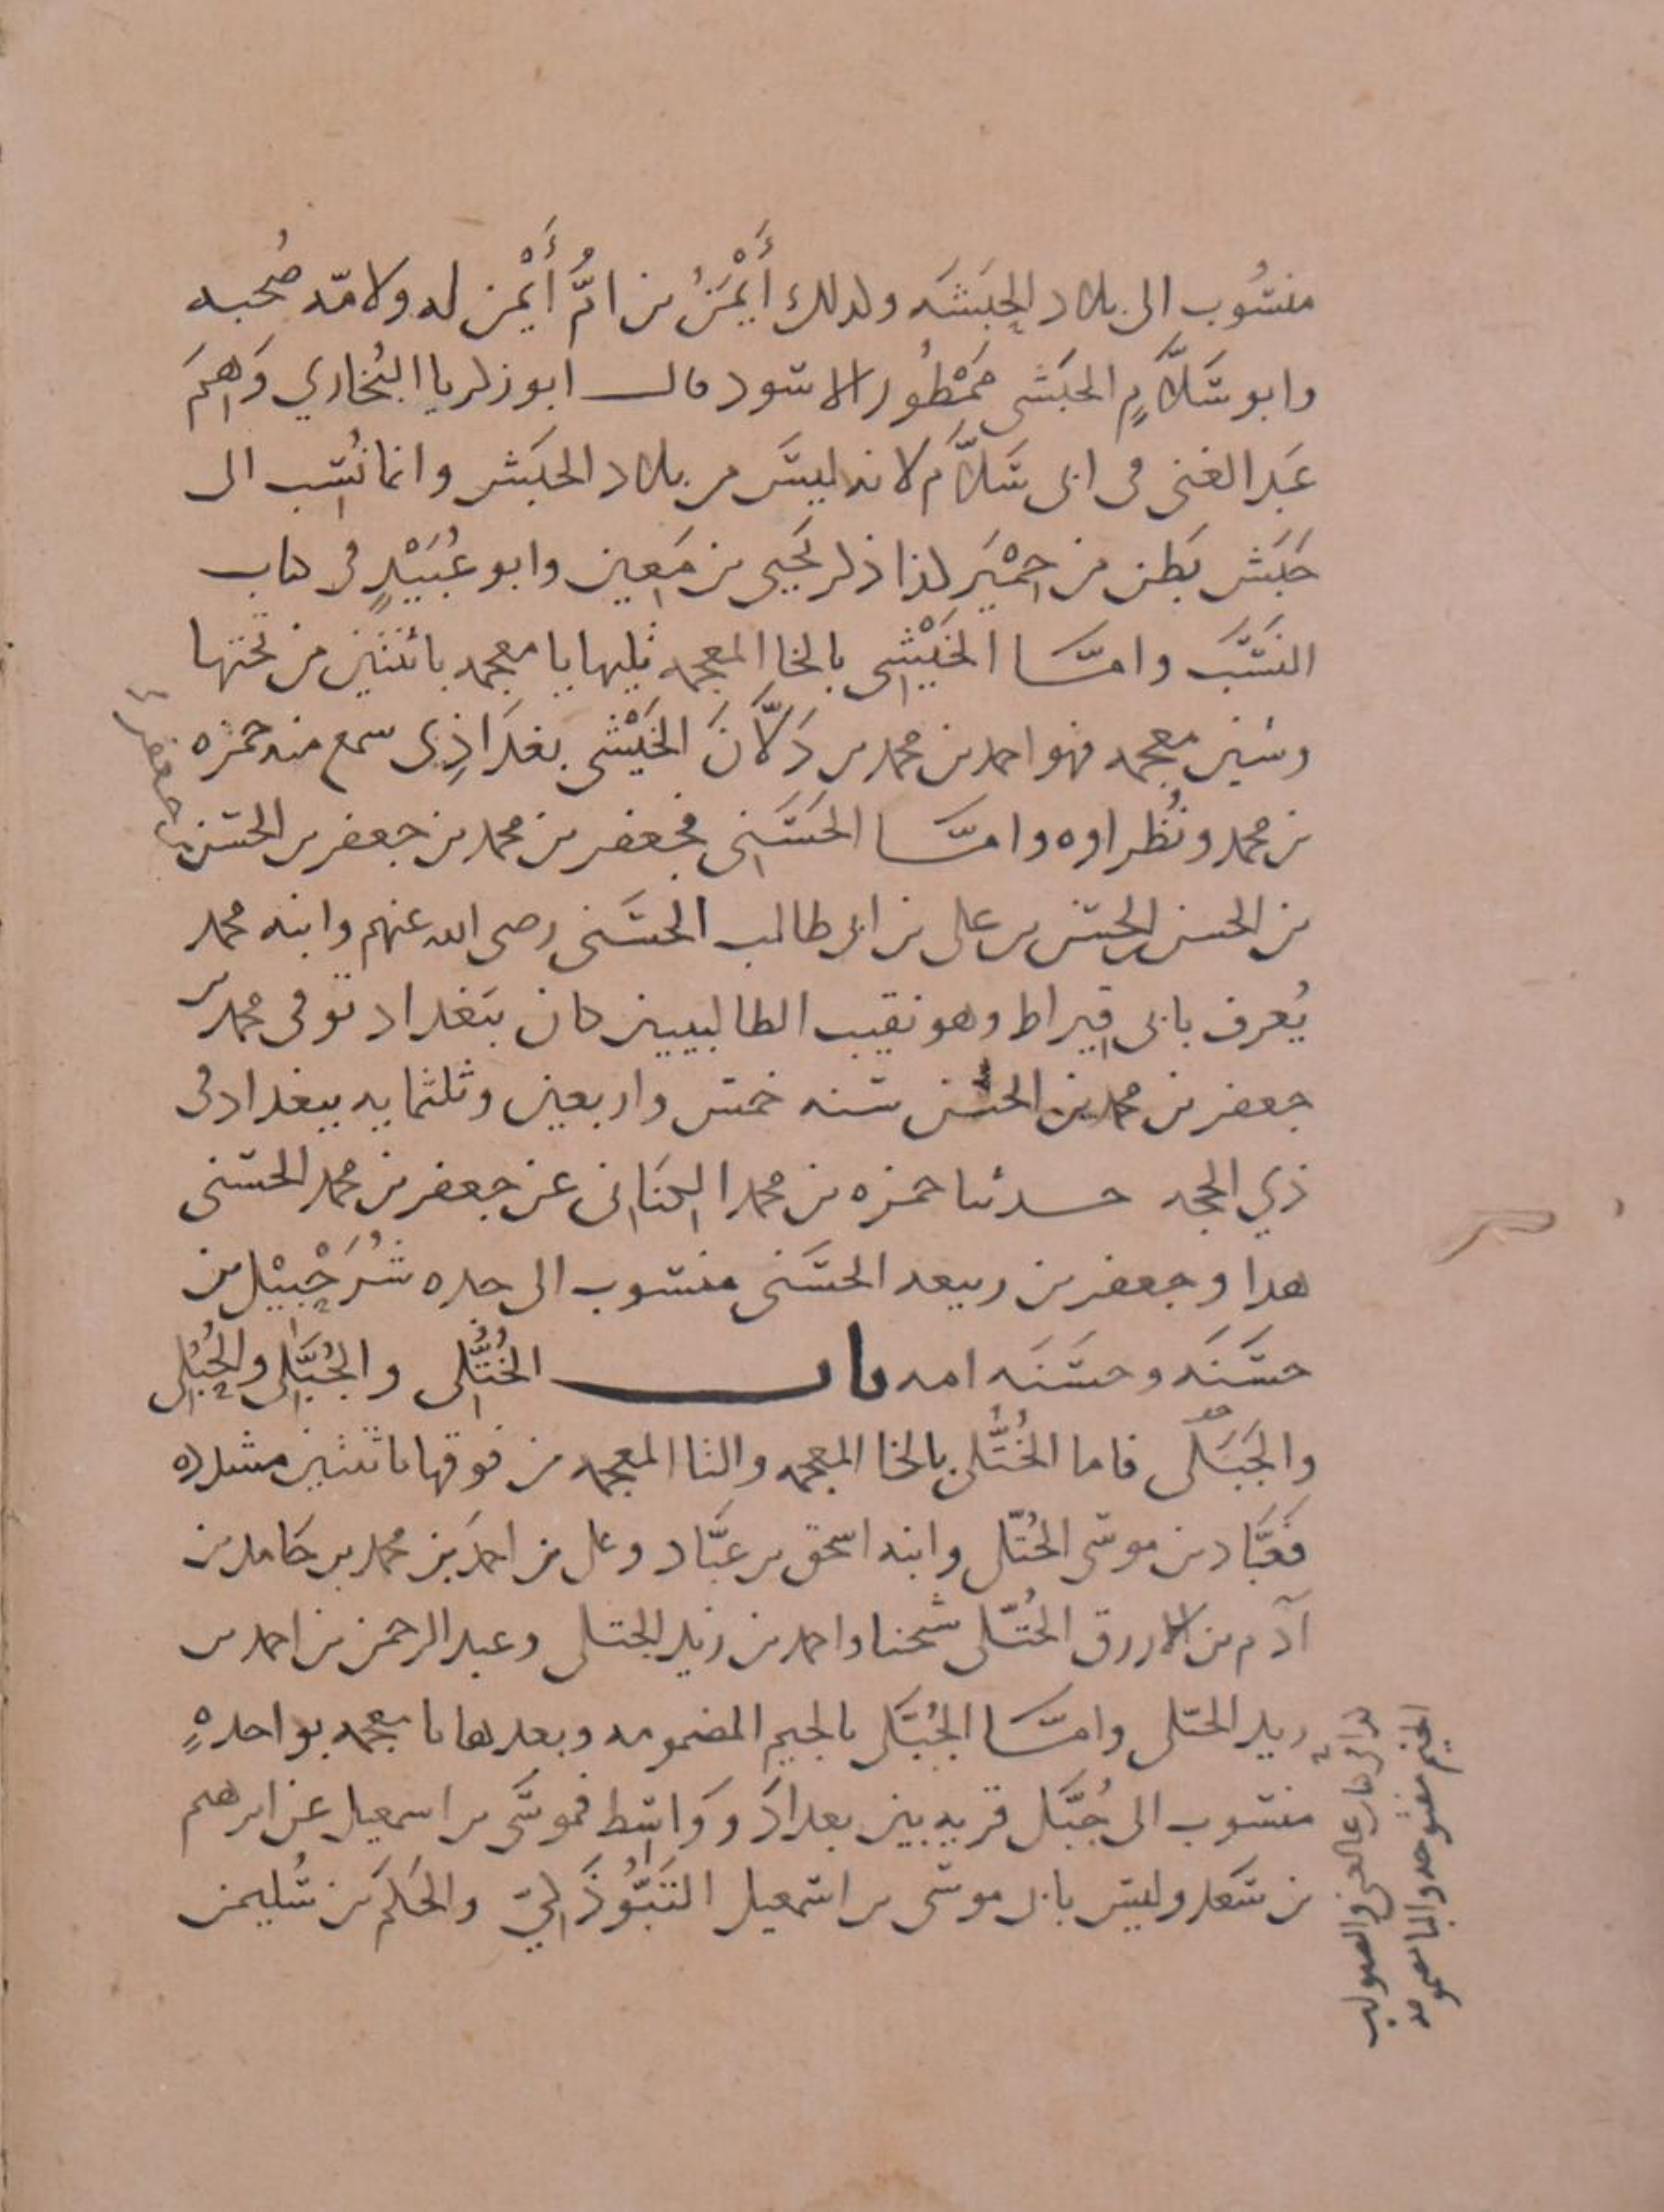 منسُوب الى بلاد الحَبَشَه ولذلك أَيْمَنُ بن امُّ أَيْمن له ولامّه صُحبه
وابو سَلَّامٍ الحبَشى مَمْطُور الاسود قال ابو زكريا البُخاري وَهِمَ
عَبد الغنى فى ابى سَلَّام لانه ليسَ من بلاد الحبَش وانما نُسِب الى
حَبَش بَطن من حِمْيَر كذا ذكر يَحيى بن مَعِين وابو عُبَيْدٍ فى كتاب
النسَب وامّا الخَيْشِى بالخا المعجمه تليها يا معجمه باثنتين من تحتها
وشين معجمه فهو احمد بن محمد بن دَلَّانَ الخَيْشى بغدَاذِى سمع منه حمزه
بن محمد ونُظراوه وامّا الحَسَنِى فجعفر بن محمد بن جعفر بن الحسن
بن جعفر
بن الحسن بن الحسن بن على بن ابى طالب الحسَنى رضى الله عنهم وابنه محمد
يُعرف بابى قِيراط وهو نقيب الطالبيين كان ببَغداد توفى محمد بن
جعفر بن محمد بن الحسن سنه خمس واربعين وثلثمايه ببغداد فى
ذي الحجه حدثنا حمزه بن محمد الكِنَانى عن جعفر بن محمد الحسَنى
هذا وجعفر بن ربيعه الحسَنى منسوب الى جده شُرَحْبِيْل بن
حسَنَه وحسَنَه امه باب الخُتُّلِى والجُبَّلِى والجُبُلِى
والجَبَلى فاما الخُتُّلى بالخا المعجمه والتا المعجمه من فوقها باثنتين مشدده
فَعَبَّاد بن موسَى الخُتّلى وابنه اسحق بن عبَّاد وعلى بن احمَد بن محمد بن حَامد بن
آدم بن الازرق الخُتّلى شيخنا واحمد بن زيد الختلى وعبد الرحمن بن احمد بن
زيد الختلى وامّا الجُبَّلى بالجيم المضمومه وبعدها با معجمه بواحدهٍ
منسوب الى جُبَّل قريه بين بغدادَ ووَاسِط فموسَى بن اسمعيل عن ابرهيم
بن سَعد وليس بابى موسى بن اسمعيل التَبُوْذَكِيّ والحَكَم بن سُليمن